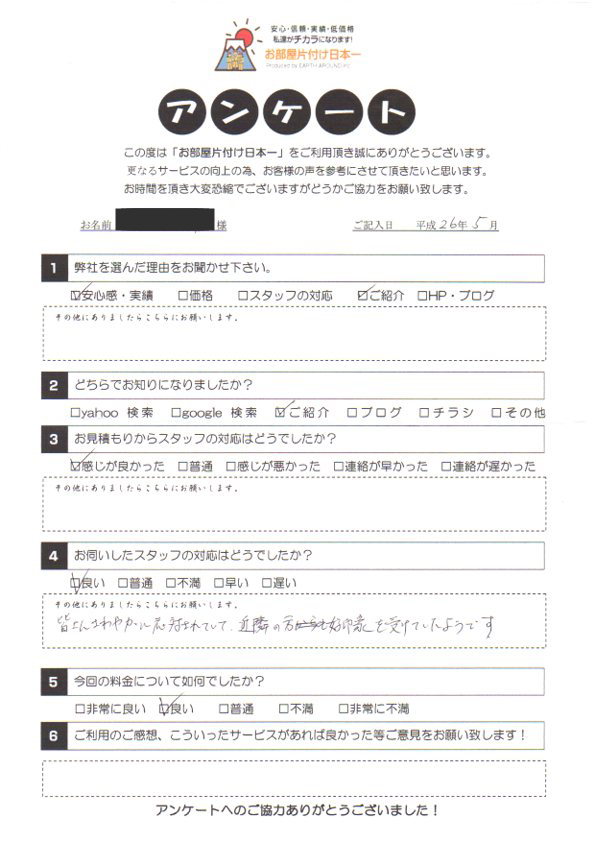 安心・信頼・実績・低価格
私達がチカラになります!
お部屋片付け日本一
Produced by EARTH AROUND inc
アンケート
この度は「お部屋片付け日本一」をご利用頂き誠にありがとうございます。
更なるサービスの向上の為、お客様の声を参考にさせて頂きたいと思います。
お時間を頂き大変恐縮でございますがどうかご協力をお願い致します。
お名前 様 ご記入日 平成26年5月
1 弊社を選んだ理由をお聞かせ下さい。
☑安心感・実績 □価格 □スタッフの対応 ☑ご紹介 □HP・ブログ
その他にありましたらこちらにお願いします。
2 どちらでお知りになりましたか?
□yahoo 検索 □google 検索 ☑ご紹介 □ブログ □チラシ □その他
3 お見積もりからスタッフの対応はどうでしたか?
☑感じが良かった □普通 □感じが悪かった □連絡が早かった □連絡が遅かった
その他にありましたらこちらにお願いします。
4 お伺いしたスタッフの対応はどうでしたか?
☑良い □普通 □不満 □早い □遅い
その他にありましたらこちらにお願いします。
皆さんさわやかに応対されていて、近隣の方も好印象を受けていたようです
5 今回の料金について如何でしたか?
□非常に良い ☑良い □普通 □不満 □非常に不満
6 ご利用のご感想、こういったサービスがあれば良かった等ご意見をお願い致します!
アンケートへのご協力ありがとうございました!